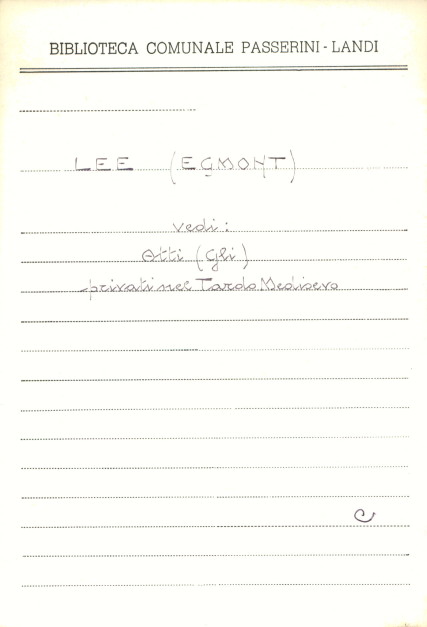 BIBLIOTECA COMUNALE PASSERINI - LANDI
LEE (EGMONT)
vedi:
Atti (Gli)
privati nel Tardo Medioevo